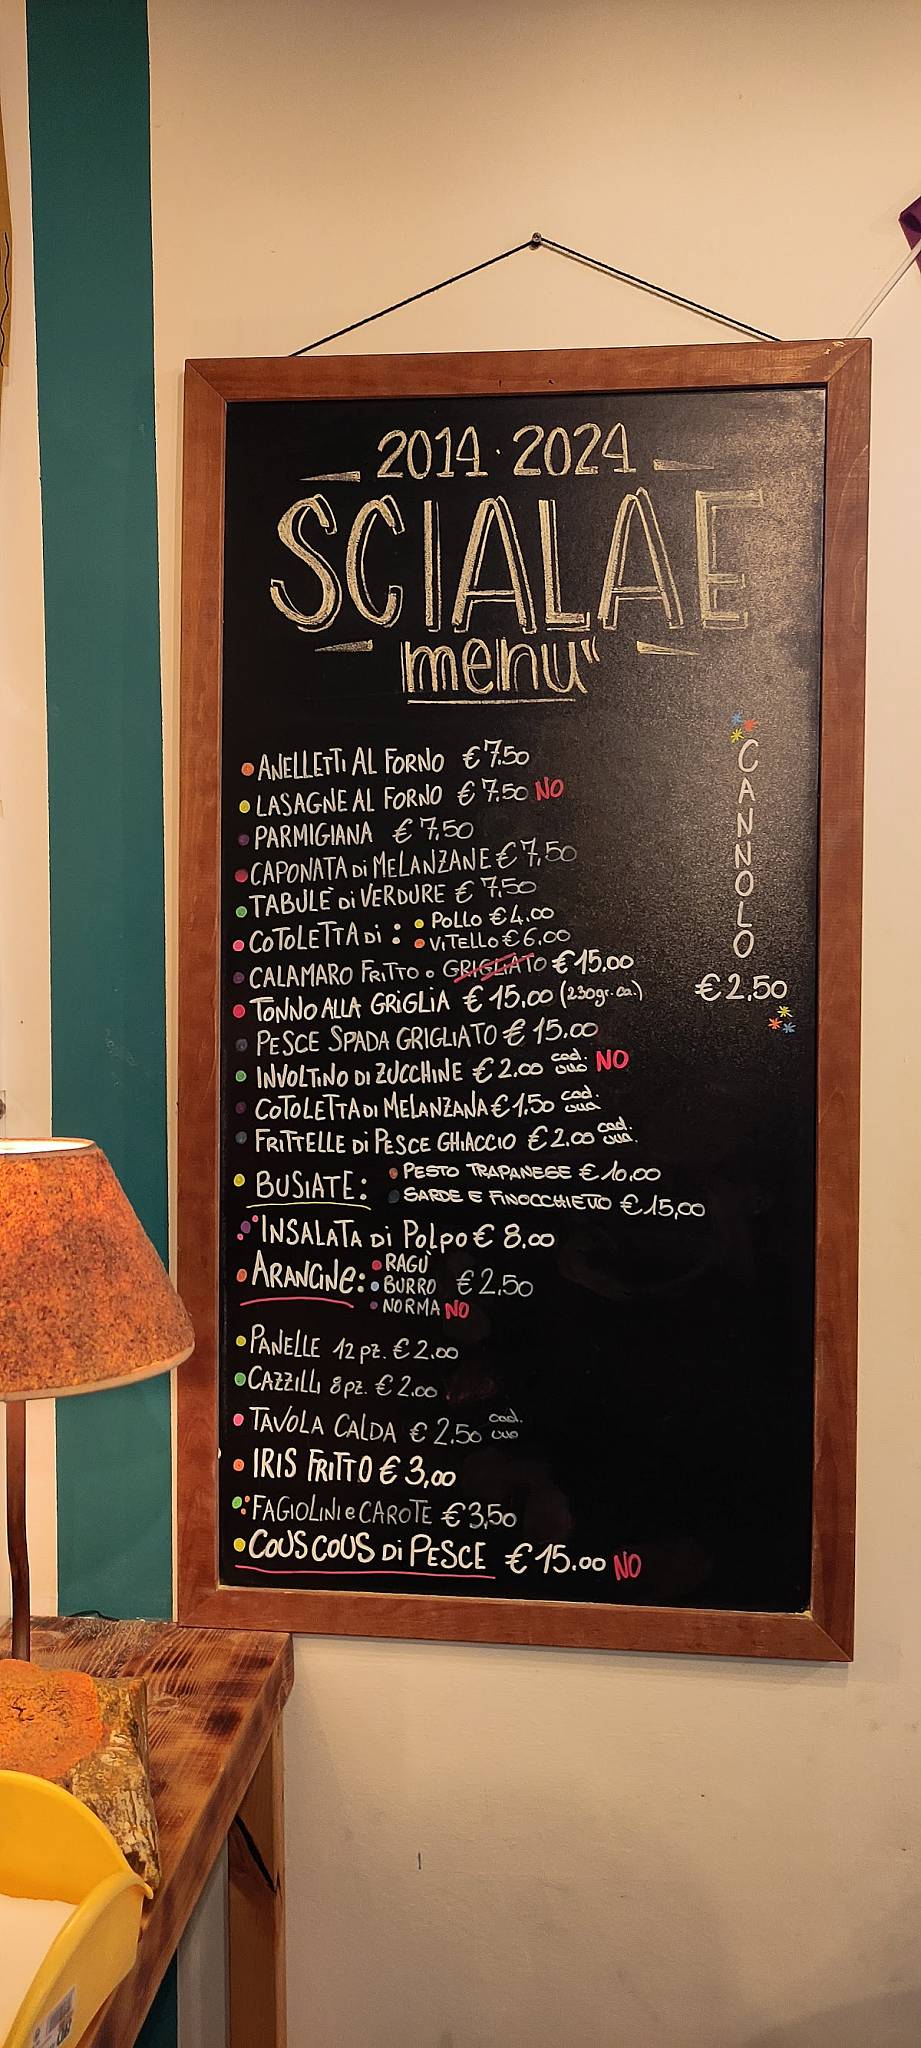 2014·2024
SCIALAE
menu"
• ANELLETTI AL FORNO €7.50
• LASAGNE AL FORNO €7.50 NO
• PARMIGIANA €7.50
• CAPONATA di MELANZANE €7,50
• TABULÈ di VERDURE €7.50
• COTOLETTA Di : • POLLO €4.00
• VITELLO €6.00
• CALAMARO FRITTO o GRIGLIATO €15.00
• TONNO ALLA GRIGLIA €15.00 (230gr.ca.)
• PESCE SPADA GRIGLIATO €15.00
• INVOLTINO DI ZUCCHINE €2.00 cad. uno NO
• COTOLETTA DI MELANZANA €1.50 cad. una
• FRITTELLE DI PESCE GHIACCIO €2.00 cad. una.
• BUSIATE: • PESTO TRAPANESE €10,00
• SARDE E FINOCCHIETTO €15,00
• INSALATA di Polpo €8,00
• ARANCINE: • RAGÙ
• BURRO €2,50
• NORMA NO
• PANELLE 12 pz. €2.00
• CAZZILLI 8 pz. €2.00
• TAVOLA CALDA €2.50 cad. uno
• IRIS FRITTO €3,00
• FAGIOLINI e CAROTE €3,50
• COUS COUS Di PESCE €15.00 NO
CANNOLO
€2,50